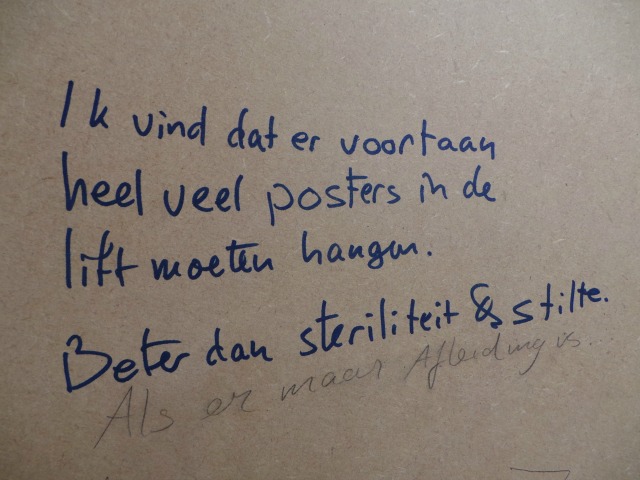 Ik vind dat er voortaan
heel veel posters in de
lift moeten hangen.
Beter dan steriliteit & stilte.
Als er maar Afleiding is...